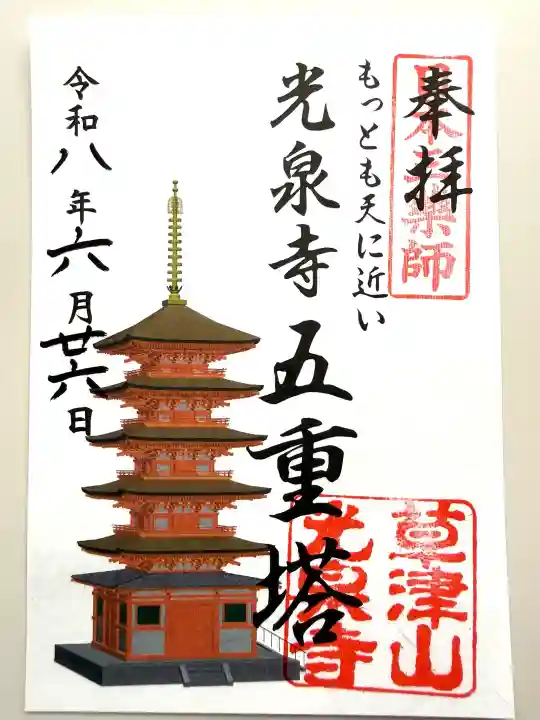 奉拝
日本三薬師
もっとも天に近い
光泉寺五重塔
草津山
光泉寺
令和八年六月廿六日